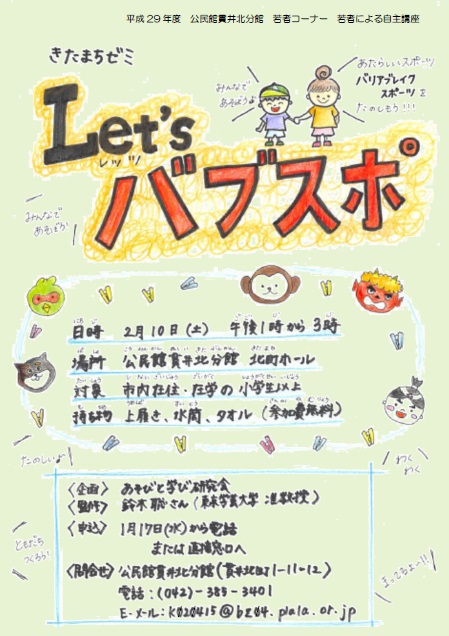 平成29年度 公民館貫井北分館 若者コーナー 若者による自主講座
きたまちゼミ
みんなで
あそぼうよ
あたらしいスポーツ
バリアブレイク
スポーツを
たのしもう!!!
Let's
レッツ
バブスポ
みんなで
あそぼう!
日時 2月10日(土) 午後1時から3時
場所 公民館貫井北分館 北町ホール
対象 市内在住・在学の小学生以上
持ち物 上履き、水筒、タオル (参加費無料)
たのしいよ!
わく
わく
〈企画〉 あそびと学び研究会
〈監修〉 鈴木聡さん (東京学芸大学 准教授)
〈申込〉 1月17日(水)から電話
または直接窓口へ
ともだち
つくろう!
〈問合せ〉 公民館貫井北分館 (貫井北町1-11-12)
電話:(042)-385-3401
E-メール:k020415@bz04.plala.or.jp
まってるよー!!